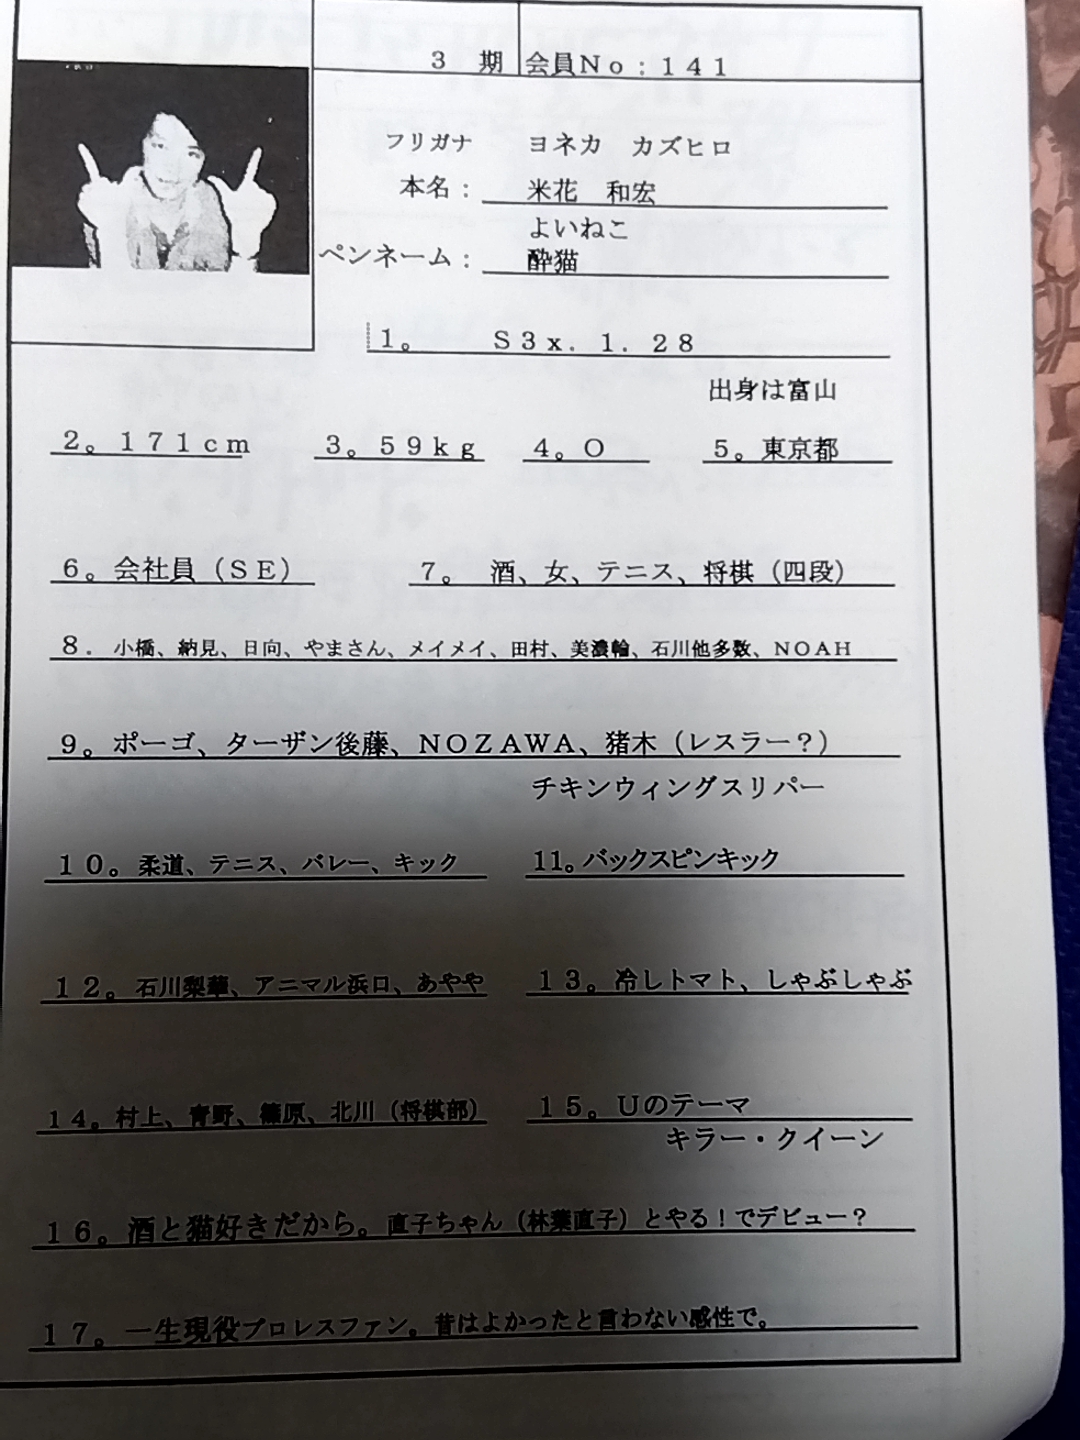 3 期 会員No：141
フリガナ ヨネカ カズヒロ
本名： 米花 和宏
よいねこ
ペンネーム： 酔猫
1。 S3x．1．28
出身は富山
2。171cm 3。59kg 4。O 5。東京都
6。会社員（SE） 7。 酒、女、テニス、将棋（四段）
8． 小橋、納見、日向、やまさん、メイメイ、田村、美濃輪、石川他多数、NOAH
9。ポーゴ、ターザン後藤、NOZAWA、猪木（レスラー？）
チキンウィングスリパー
10。柔道、テニス、バレー、キック 11。バックスピンキック
12。石川梨華、アニマル浜口、あやや 13。冷しトマト、しゃぶしゃぶ
14。村上、青野、篠原、北川（将棋部） 15。Uのテーマ
キラー・クイーン
16。酒と猫好きだから。直子ちゃん（林葉直子）とやる！でデビュー？
17。一生現役プロレスファン。昔はよかったと言わない感性で。